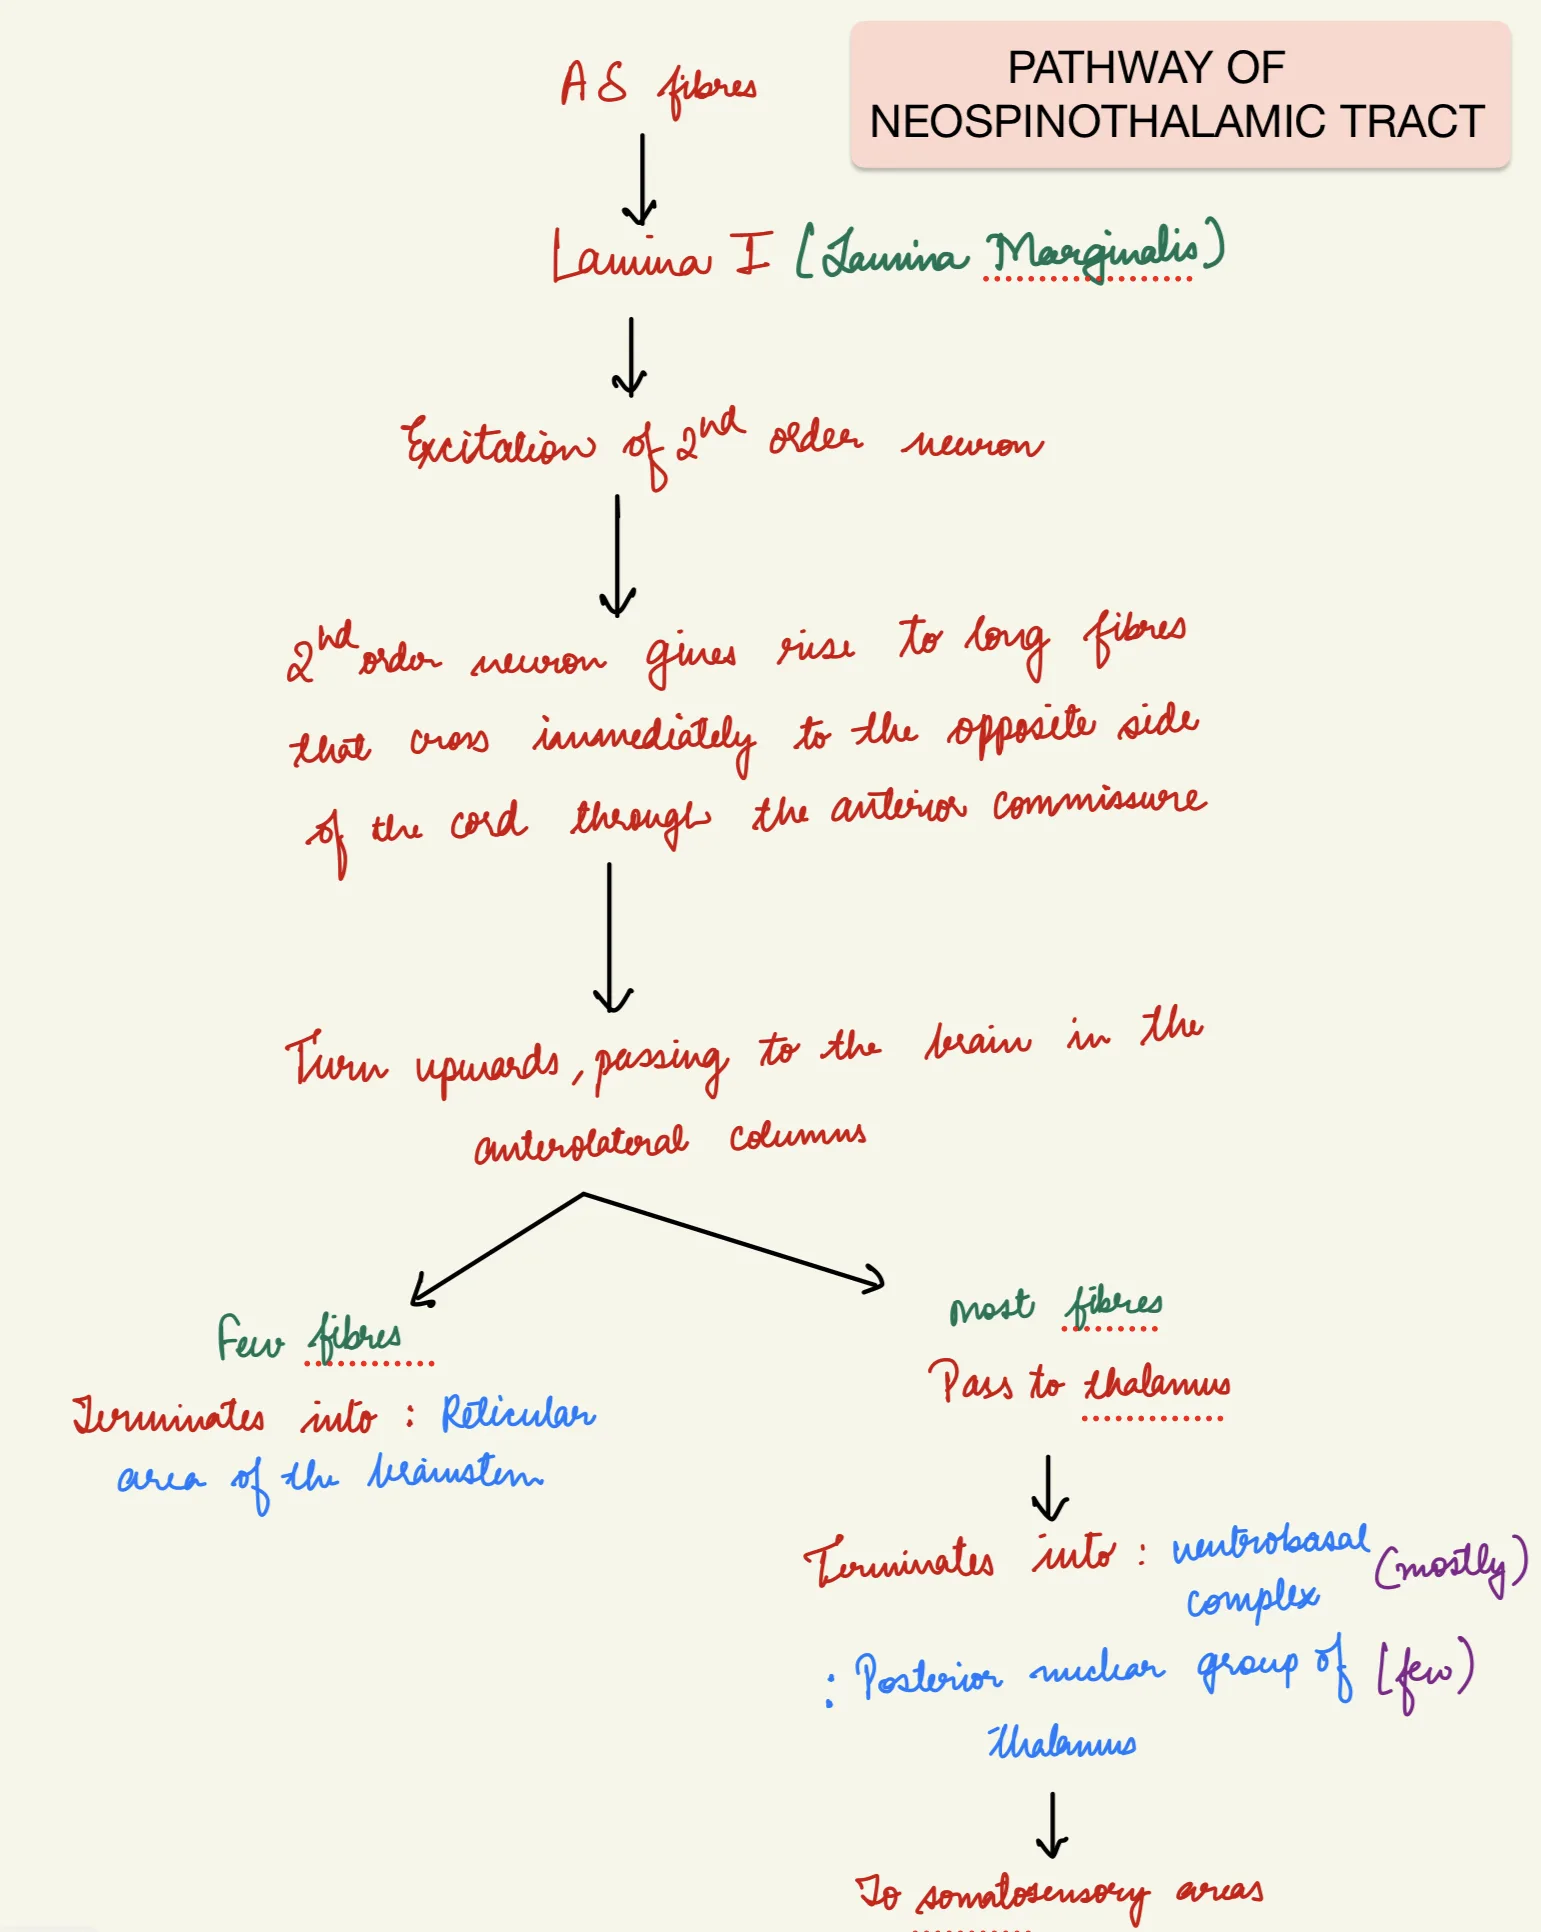 PATHWAY OF
NEOSPINOTHALAMIC TRACT
Aδ fibres
Lamina I (Lamina Marginalis)
Excitation of 2nd order neuron
2nd order neuron gives rise to long fibres
that cross immediately to the opposite side
of the cord through the anterior commissure
Turn upwards, passing to the brain in the
anterolateral columns
Few fibres
Terminates into : Reticular
area of the brainstem
most fibres
Pass to thalamus
Terminates into : ventrobasal (mostly)
complex
: Posterior nuclear group of (few)
thalamus
To somatosensory areas